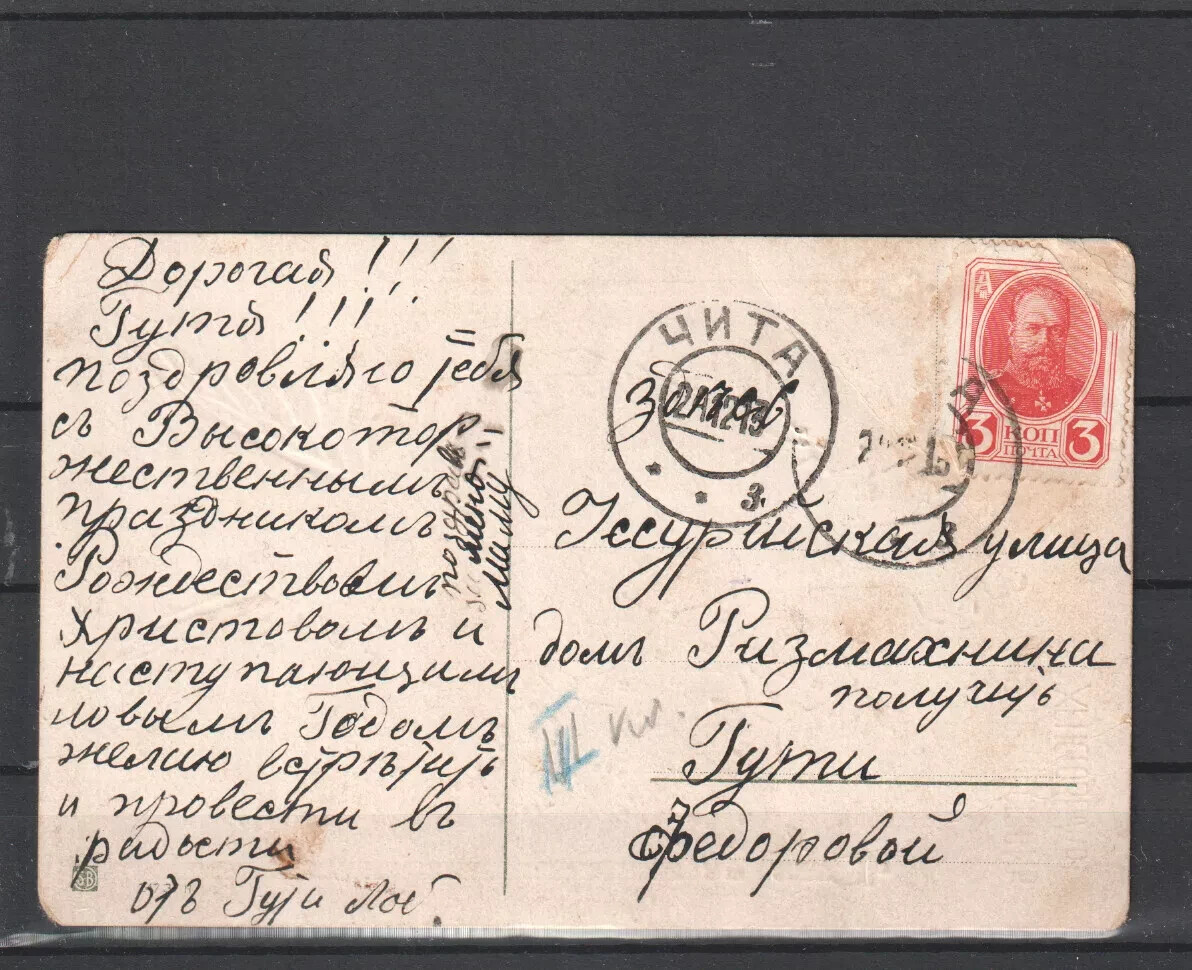 Дорогая!!!
Гутя!!!
поздровляю тебя
съ Высокотор
жественнымъ
праздникомъ
Рождествомъ
Христовомъ и
наступающимъ
новымъ Годомъ
желаю встрѣтить
и провести въ
радости
отъ Гути
поздравь
за меня
маму
ЧИТА
3.
А
3 КОП 3
ПОЧТА
3
Уссурійская улица
домъ Ризмахнина
получить
Гути
Федоровой
III кл.
SB